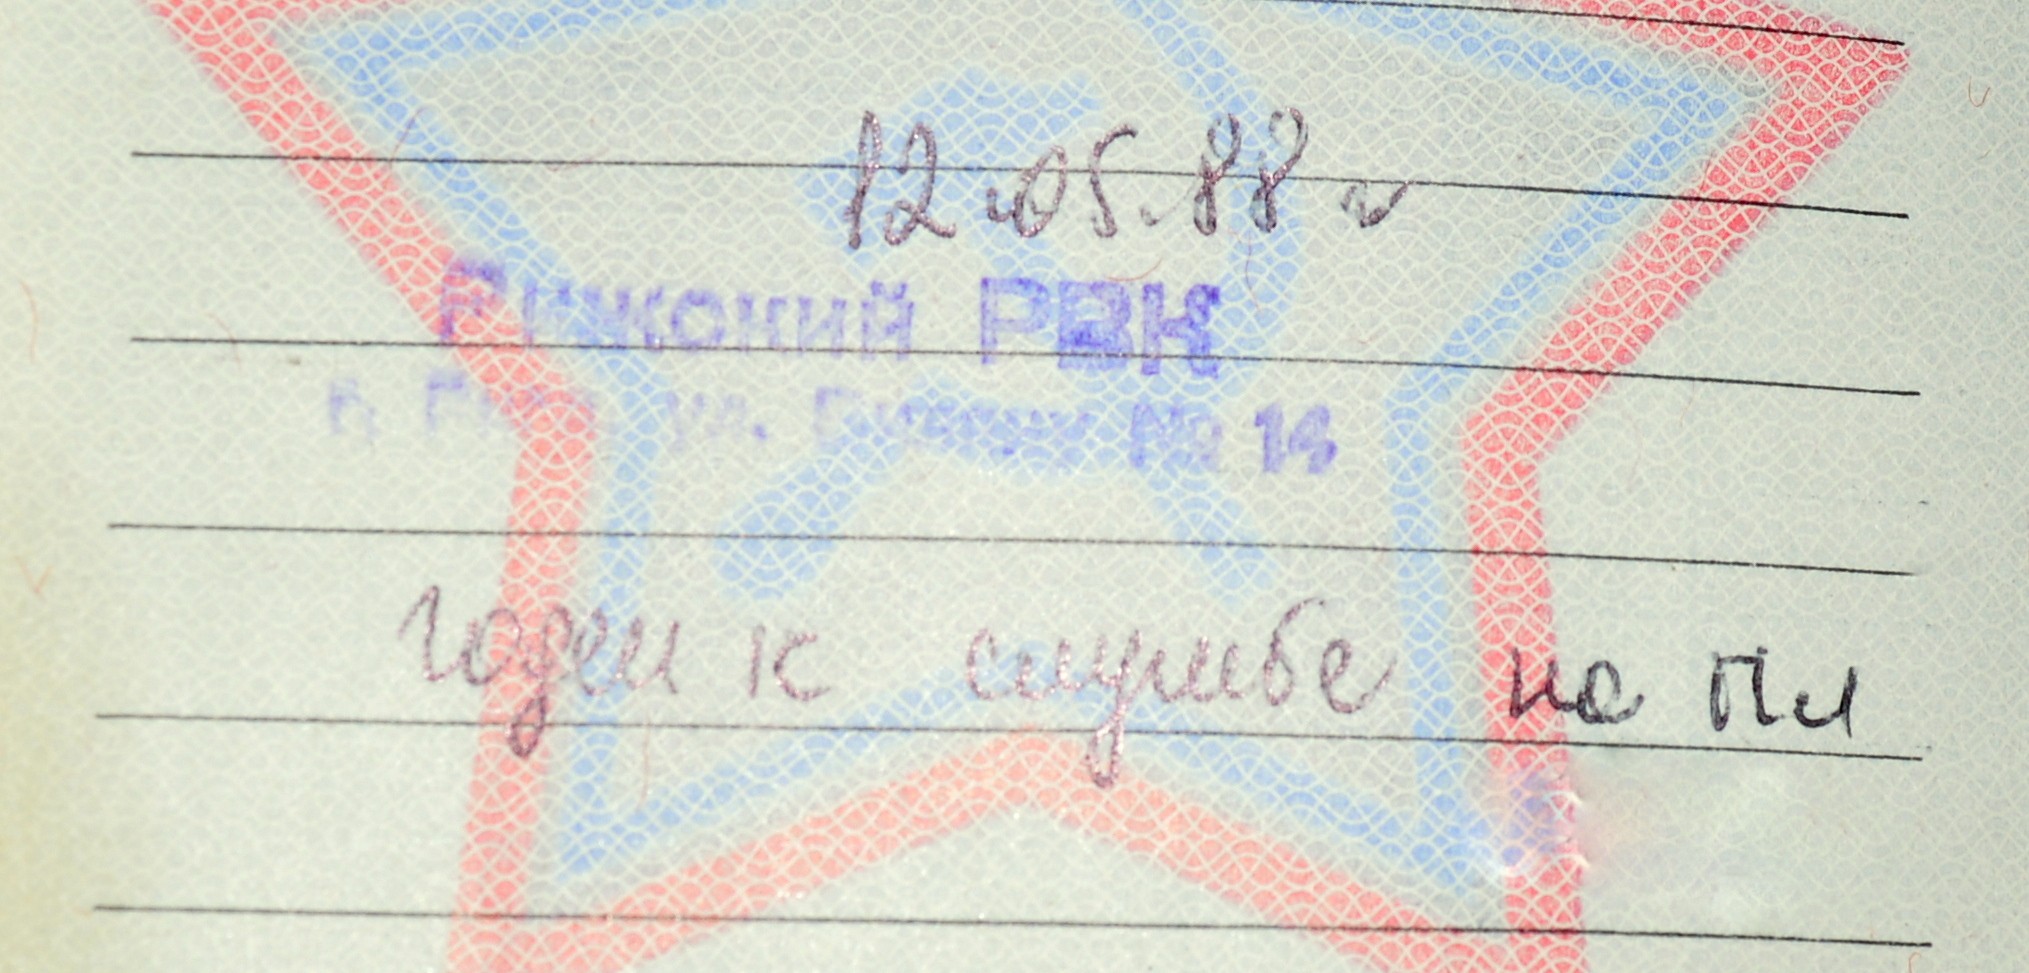 12.05.88 г
Рижский РВК
г. Рига ул. № 14
годен к службе на Пл